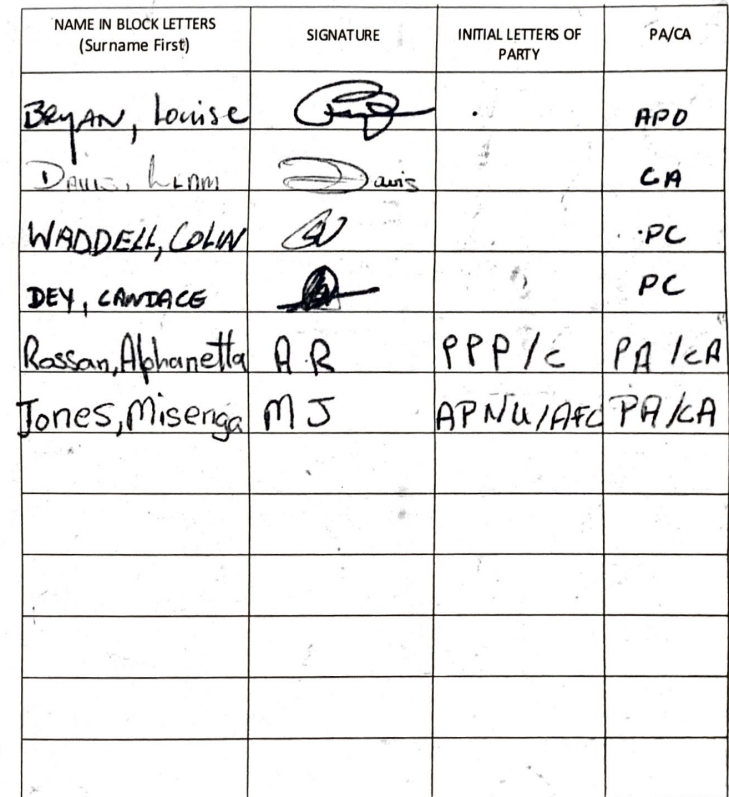 NAME IN BLOCK LETTERS (Surname First) SIGNATURE INITIAL LETTERS OF PARTY PA/CA
BRYAN, Louise APO
DAVIS, Davis CA
WADDELL, COLIN PC
DEY, CANDACE PC
Rossan, Alphanetta A.R PPP/C PA/CA
Jones, Misenga MJ APNU/AFC PA/CA